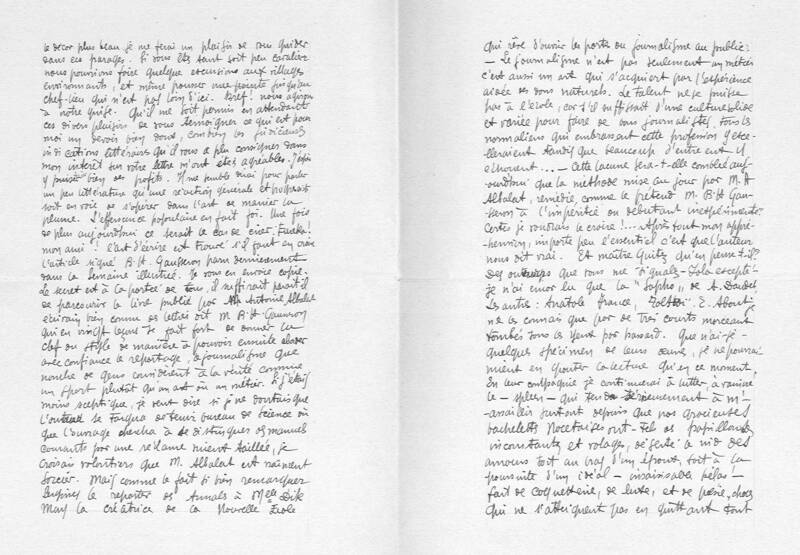 le décor plus beau je me ferai un plaisir de vous guider
dans ces parages. Si vous êtes tant soit peu cavalier
nous pourrions faire quelque excursions aux villages
environnants, et même pousser une pointe jusqu'au
chef-lieu qui n'est pas loin d'ici. Bref: nous agirons
à notre guise. Qu'il me soit permis en attendant
ces divers plaisirs de vous témoigner ce qui est pour
moi un devoir bien doux, combien les judicieuses
indications littéraires qu'il vous a plu consigner dans
mon intérêt sur votre lettre m'ont été agréables. J'espère
y puiser bien des profits. Il me semble aussi pour parler
un peu littérature qu'une réaction générale et
soit en voie de s'opérer dans l'art de manier la
plume. L'effervescence populaire en fait foi. Une fois
de plus aujourd'hui ce serait le cas de crier: Eureka!
mon ami! l'art d'écrire est trouvé s'il faut en croire
l'article signé B.-H. Gausseron paru dernièrement
dans la Semaine illustrée. Je vous en envoie copie.
Le secret est à la portée de tous, il suffirait paraît-il
de parcourir le livre publié par M. Antoine Albalat
écrivain bien connu des lettrés dit M. B-H Gausseron
qui en vingt leçons se fait fort de donner la
clef du style de manière à pouvoir ensuite aborder
avec confiance le reportage, le journalisme que
nombre de gens considèrent à la vérité comme
un sport plutôt qu'un art ou un métier. Si j'étais
moins sceptique, je veux dire si je me doutais que
l'auteur se targua de tenir bureau de science ou
que l'ouvrage chercha à se distinguer des manuels
courants par une réclame mieux taillée, je
croirais volontiers que M. Albalat est vraiment
sorcier. Mais comme le fait si bien remarquer
le reporter des Annales à Melle Dick
May la créatrice de la Nouvelle École
qui rêve d'ouvrir les portes du journalisme au public:
— Le journalisme n'est pas seulement un métier
c'est aussi un art qui s'acquiert par l'expérience
aidée des dons naturels. Le talent ne se puise
pas à l'école; car s'il suffisait d'une culture solide
et variée pour faire de bons journalistes, tous les
normaliens qui embrassent cette profession y excel-
leraient tandis que beaucoup d'entre eux y
échouent... — Cette lacune sera-t-elle comblée auj-
ourd'hui que la méthode mise au jour par M. A
Albalat, remédie, comme le prétend M. B-H Gaus-
seron à l'impéritie du débutant inexpérimenté.
Certes je voudrais le croire!... Après tout mon appré-
hension, importe peu l'essentiel c'est que l'auteur
nous dit vrai. Et maître Guitet qu'en pense-t-il?
Des ouvrages que vous me signalez — Zola excepté —
je n'ai encor lu que la "Sapho" de A. Daudet.
Les autres: Anatole France, Tolstoï. E. About
ne les connais que par de très courts morceaux
tombés sous les yeux par hasard. Que n'ai-je
quelques spécimen de leurs œuvres, je ne pourrai
mieux en goûter la lecture qu'en ce moment.
En leur compagnie je continuerai à lutter, à vaincre
le — spleen — qui tend dernièrement à m'-
-assaillir surtout depuis que nos gracieuses
bachelettes Nocetaises ont - tel des papillons
inconstants et volages, déserté le nid des
amours soit au bras d'un époux, soit à la
poursuite d'un idéal — insaisissable hélas! —
fait de coquetterie, de luxe, et de poésie, choses
qui ne s'atteignent pas en quittant tout